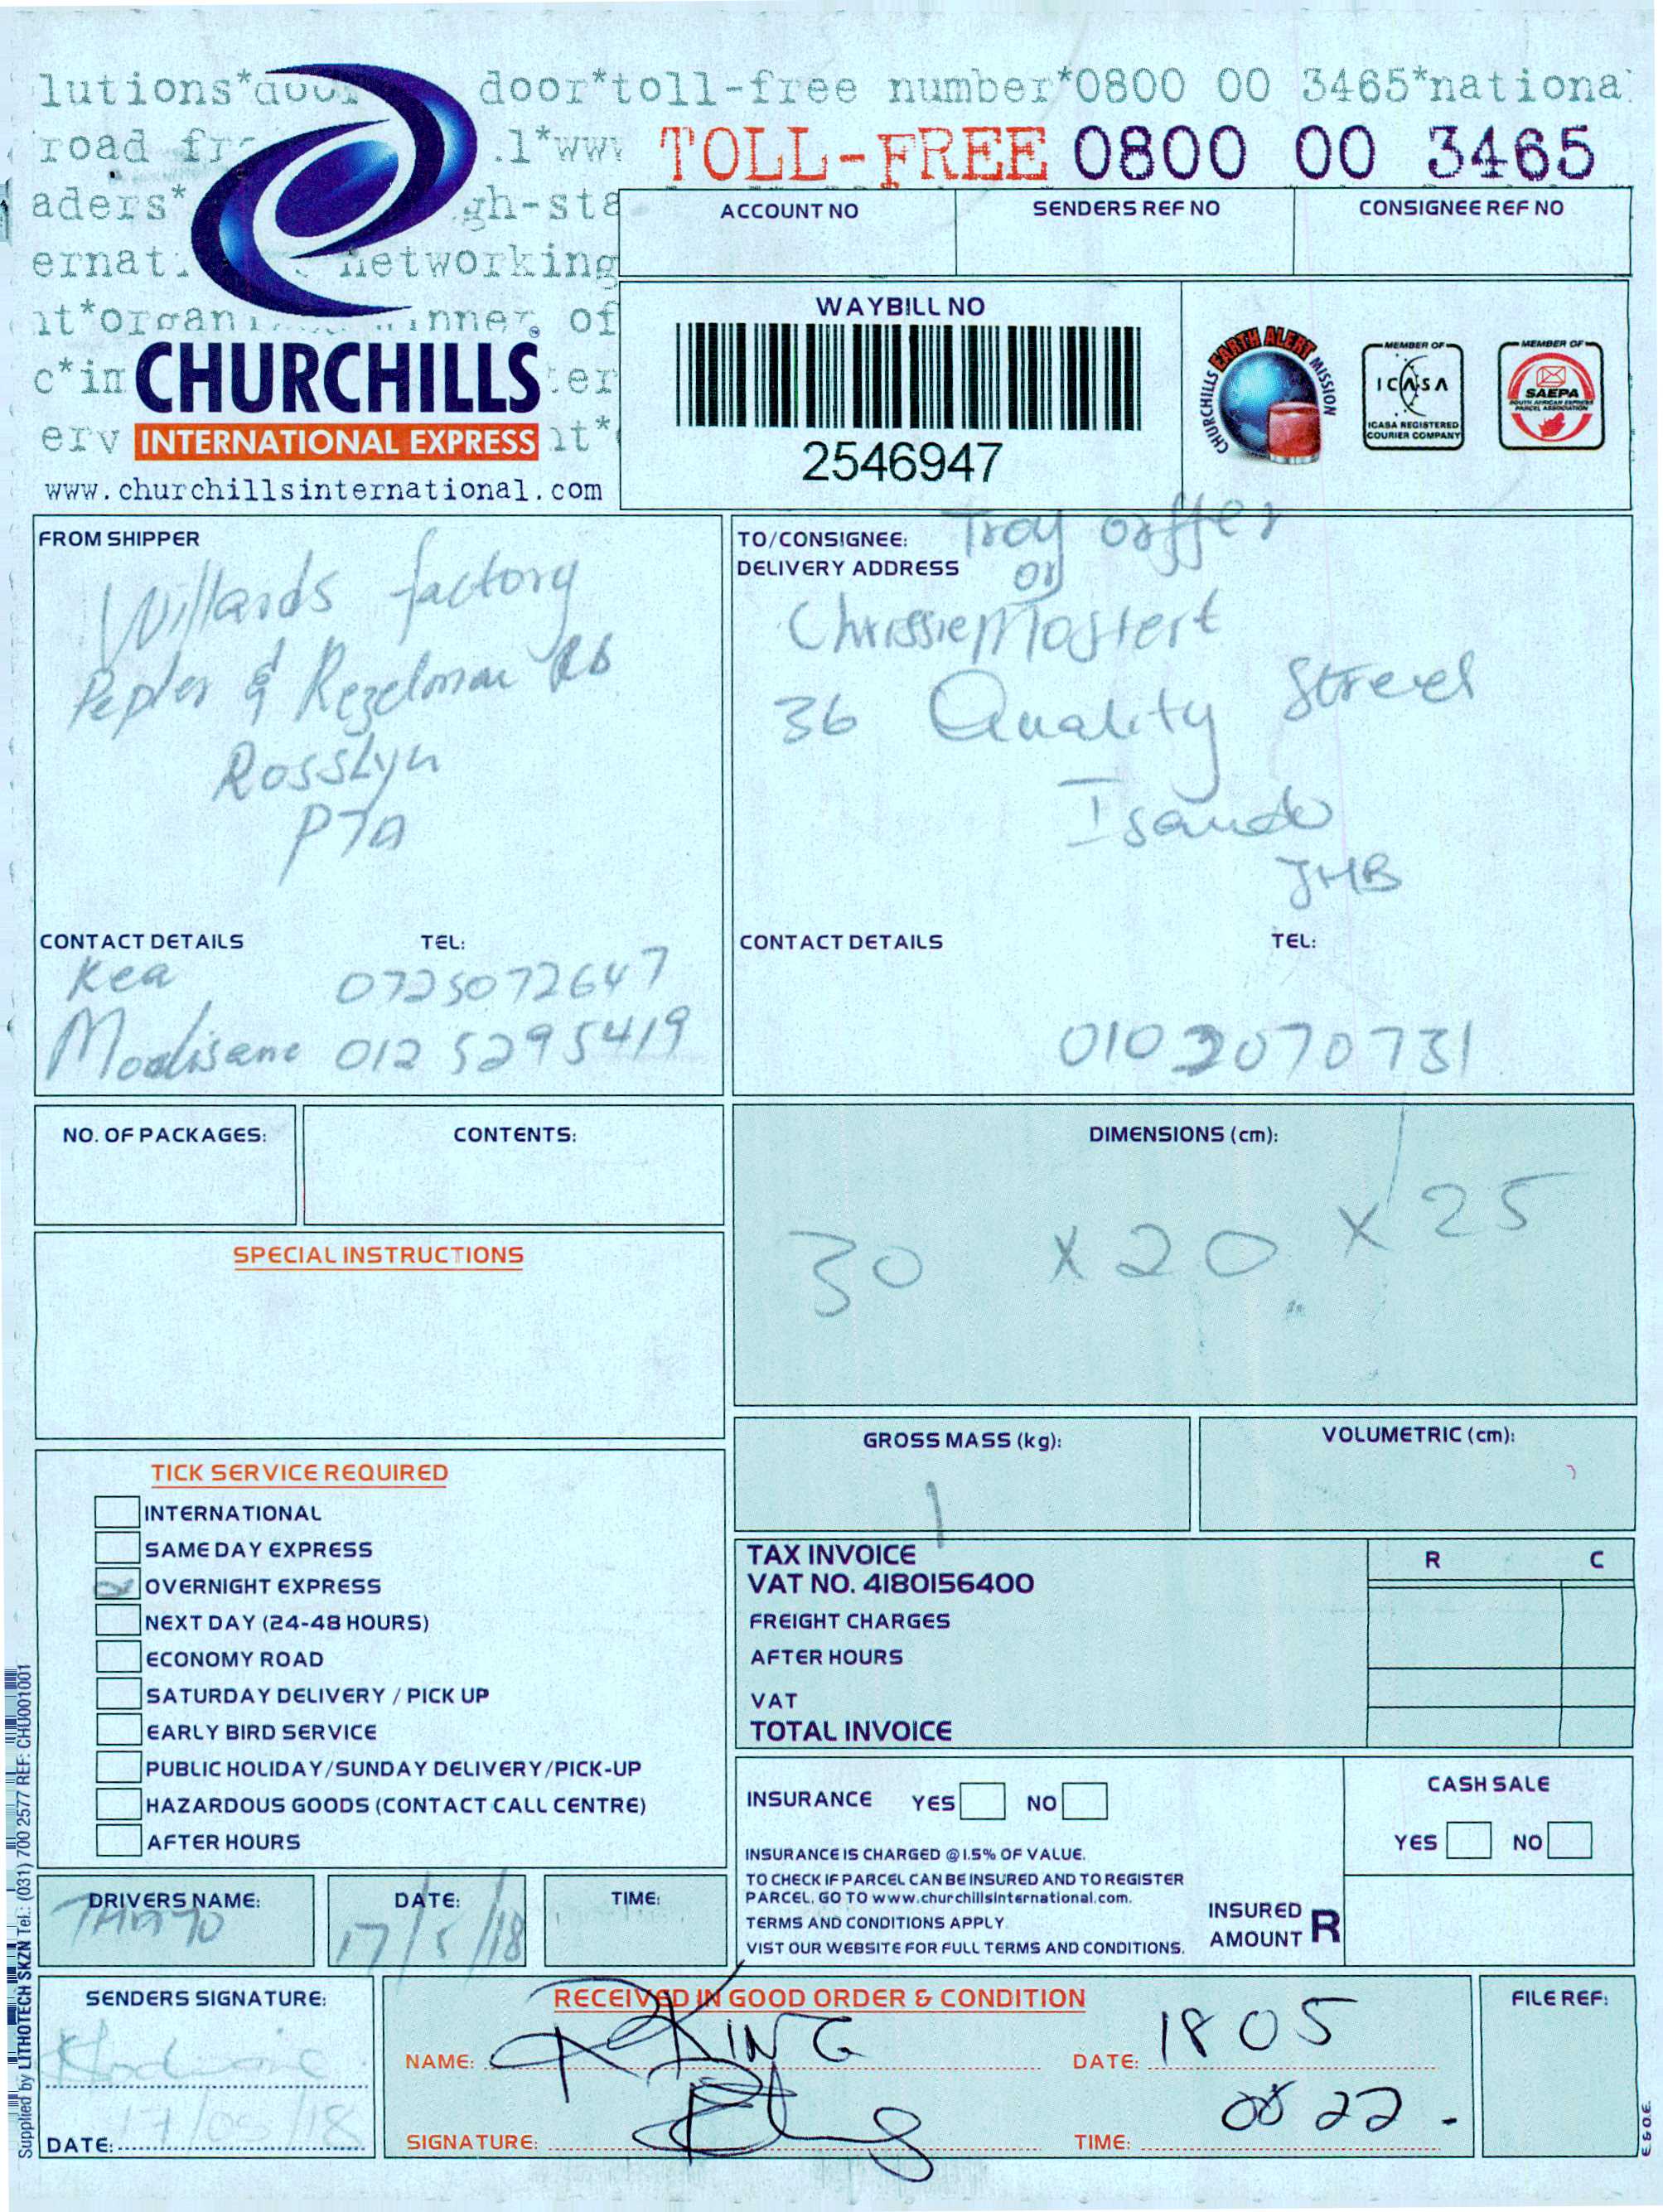 lutions*door door*toll-free number*0800 00 3465*nationa
road .1*www TOLL-FREE 0800 00 3465
aders* gh-sta
ACCOUNT NO SENDERS REF NO CONSIGNEE REF NO
ernat networking
nt*organ inner of
CHURCHILLS
INTERNATIONAL EXPRESS
c*in ter
erv nt*
www.churchillsinternational.com
WAYBILL NO
2546947
CHURCHILLS EARTH ALERT MISSION
MEMBER OF
ICASA
ICASA REGISTERED
COURIER COMPANY
MEMBER OF
SAEPA
SOUTH AFRICAN EXPRESS
PARCEL ASSOCIATION
FROM SHIPPER
Willards factory
Pepler & Rezelman Rd
Rosslyn
PTA
CONTACT DETAILS TEL:
Kea 0725072647
Modisane 012 5295419
TO/CONSIGNEE: Troy orffer
DELIVERY ADDRESS or
Chrissie Mostert
36 Quality Street
Isando
JHB
CONTACT DETAILS TEL:
0102070731
NO. OF PACKAGES: CONTENTS:
DIMENSIONS (cm):
30 x 20 x 25
SPECIAL INSTRUCTIONS
GROSS MASS (kg): VOLUMETRIC (cm):
1
TICK SERVICE REQUIRED
INTERNATIONAL
SAME DAY EXPRESS
OVERNIGHT EXPRESS
NEXT DAY (24-48 HOURS)
ECONOMY ROAD
SATURDAY DELIVERY / PICK UP
EARLY BIRD SERVICE
PUBLIC HOLIDAY/SUNDAY DELIVERY/PICK-UP
HAZARDOUS GOODS (CONTACT CALL CENTRE)
AFTER HOURS
TAX INVOICE R C
VAT NO. 4180156400
FREIGHT CHARGES
AFTER HOURS
VAT
TOTAL INVOICE
INSURANCE YES NO
INSURANCE IS CHARGED @ 1.5% OF VALUE.
TO CHECK IF PARCEL CAN BE INSURED AND TO REGISTER
PARCEL, GO TO www.churchillsinternational.com.
TERMS AND CONDITIONS APPLY
VIST OUR WEBSITE FOR FULL TERMS AND CONDITIONS.
CASH SALE
YES NO
INSURED
AMOUNT R
DRIVERS NAME: DATE: TIME:
17/5/18
SENDERS SIGNATURE:
17/05/18
DATE:
RECEIVED IN GOOD ORDER & CONDITION
NAME: KING DATE: 1805
SIGNATURE: TIME: 0822.
FILE REF:
E & O.E.
Supplied by LITHOTECH SKZN Tel.: (031) 700 2577 REF: CHU001001